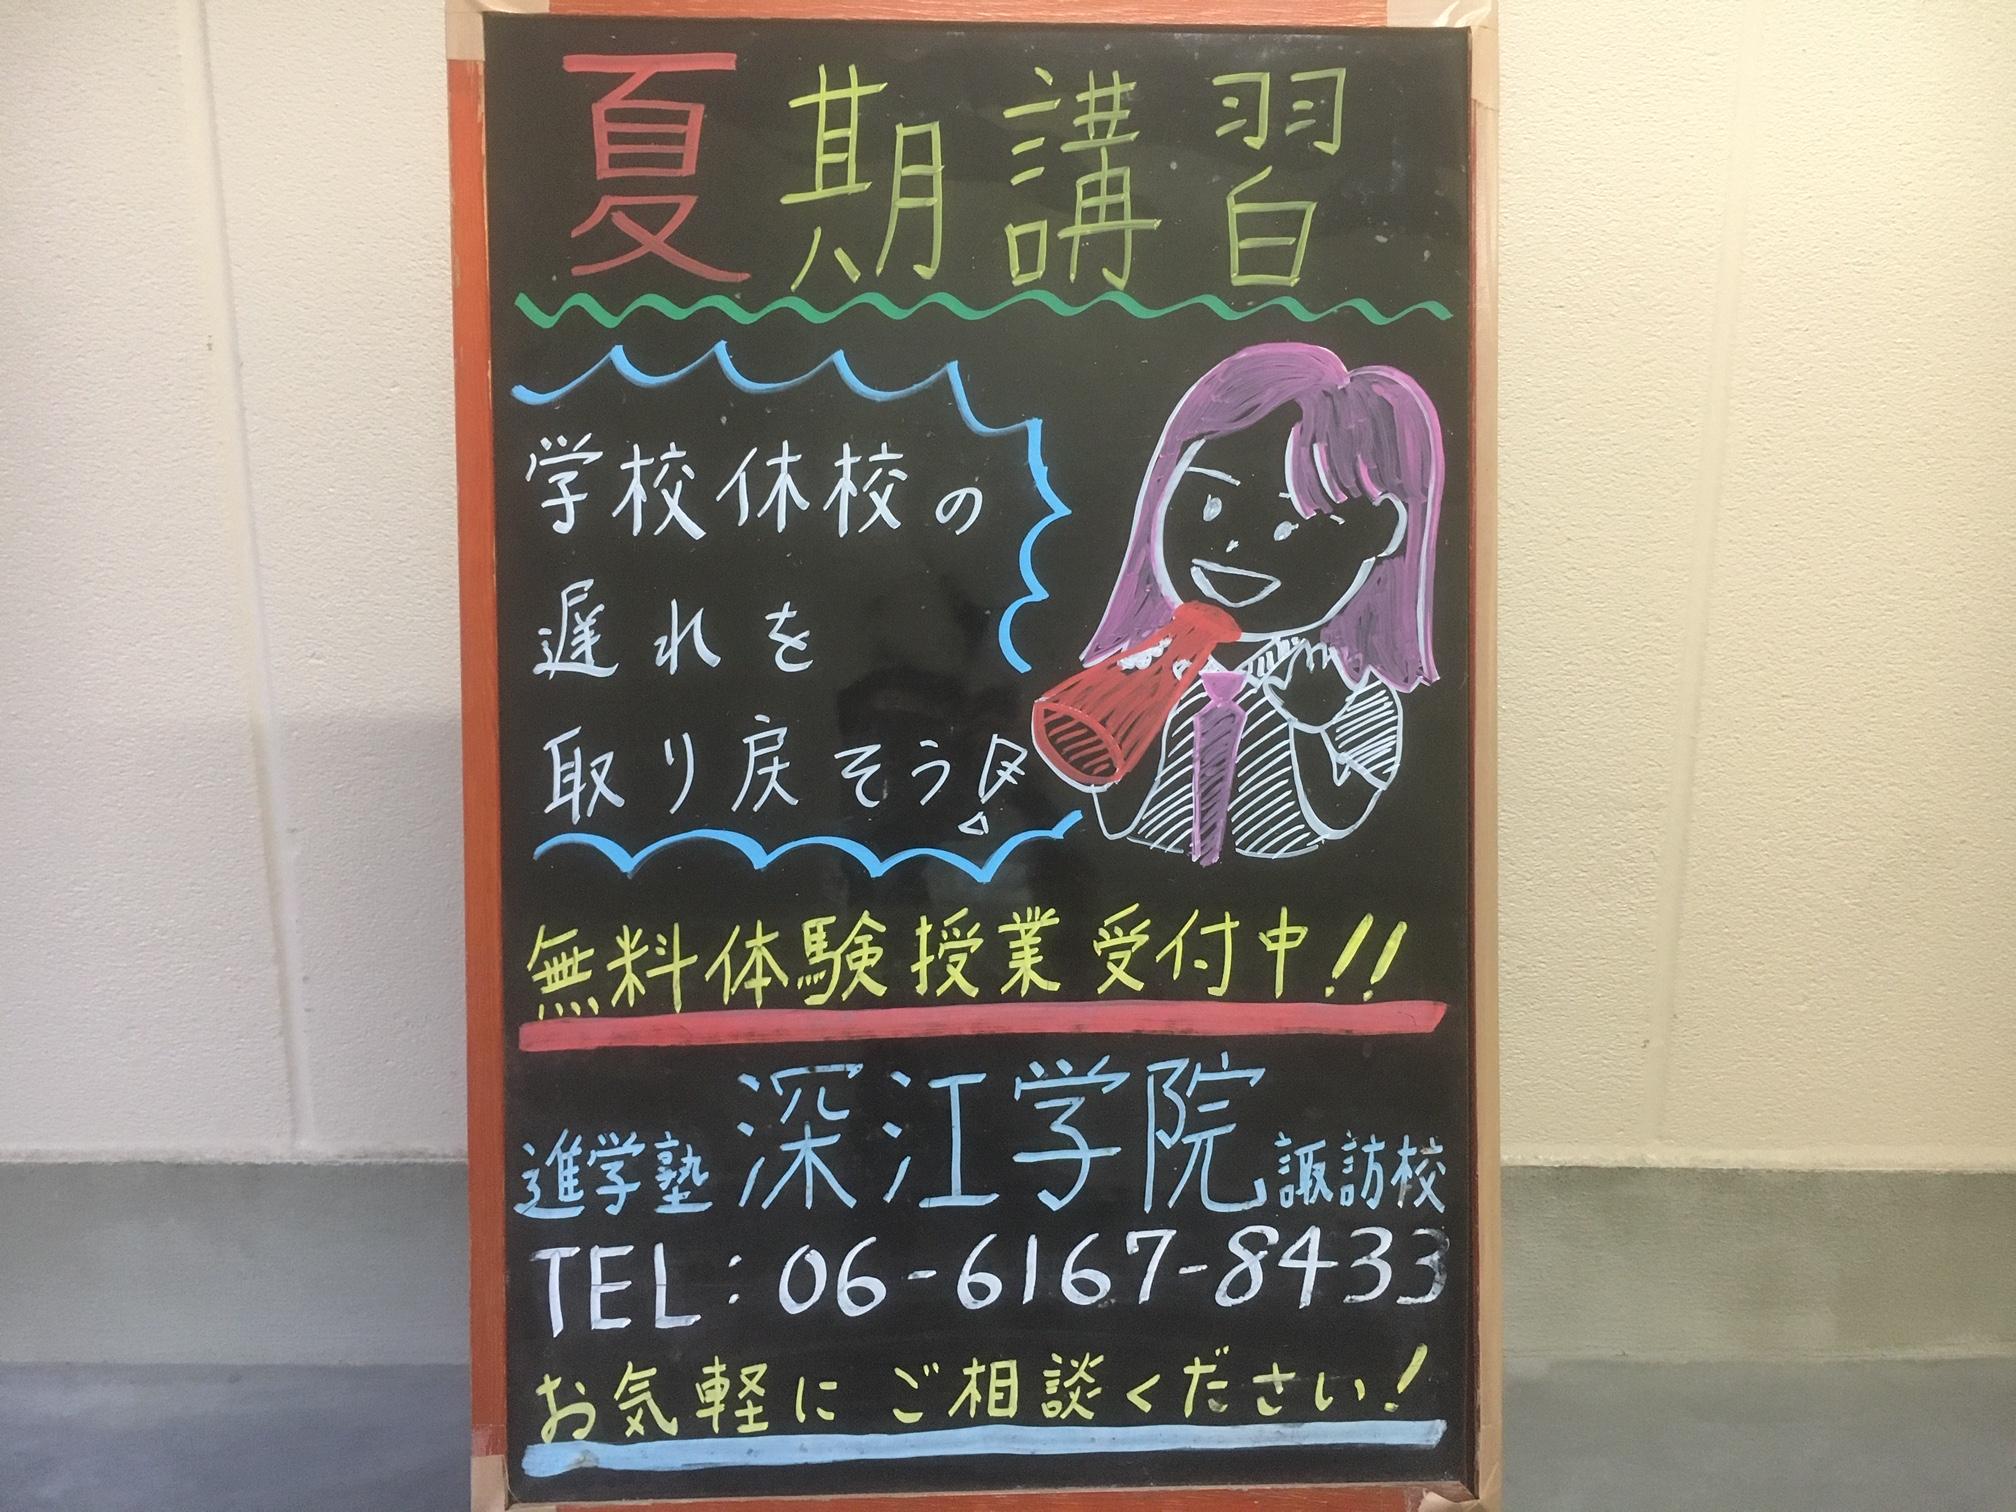 夏期講習
学校休校の
遅れを
取り戻そう!
無料体験授業受付中!!
進学塾 深江学院 諏訪校
TEL:06-6167-8433
お気軽にご相談ください!